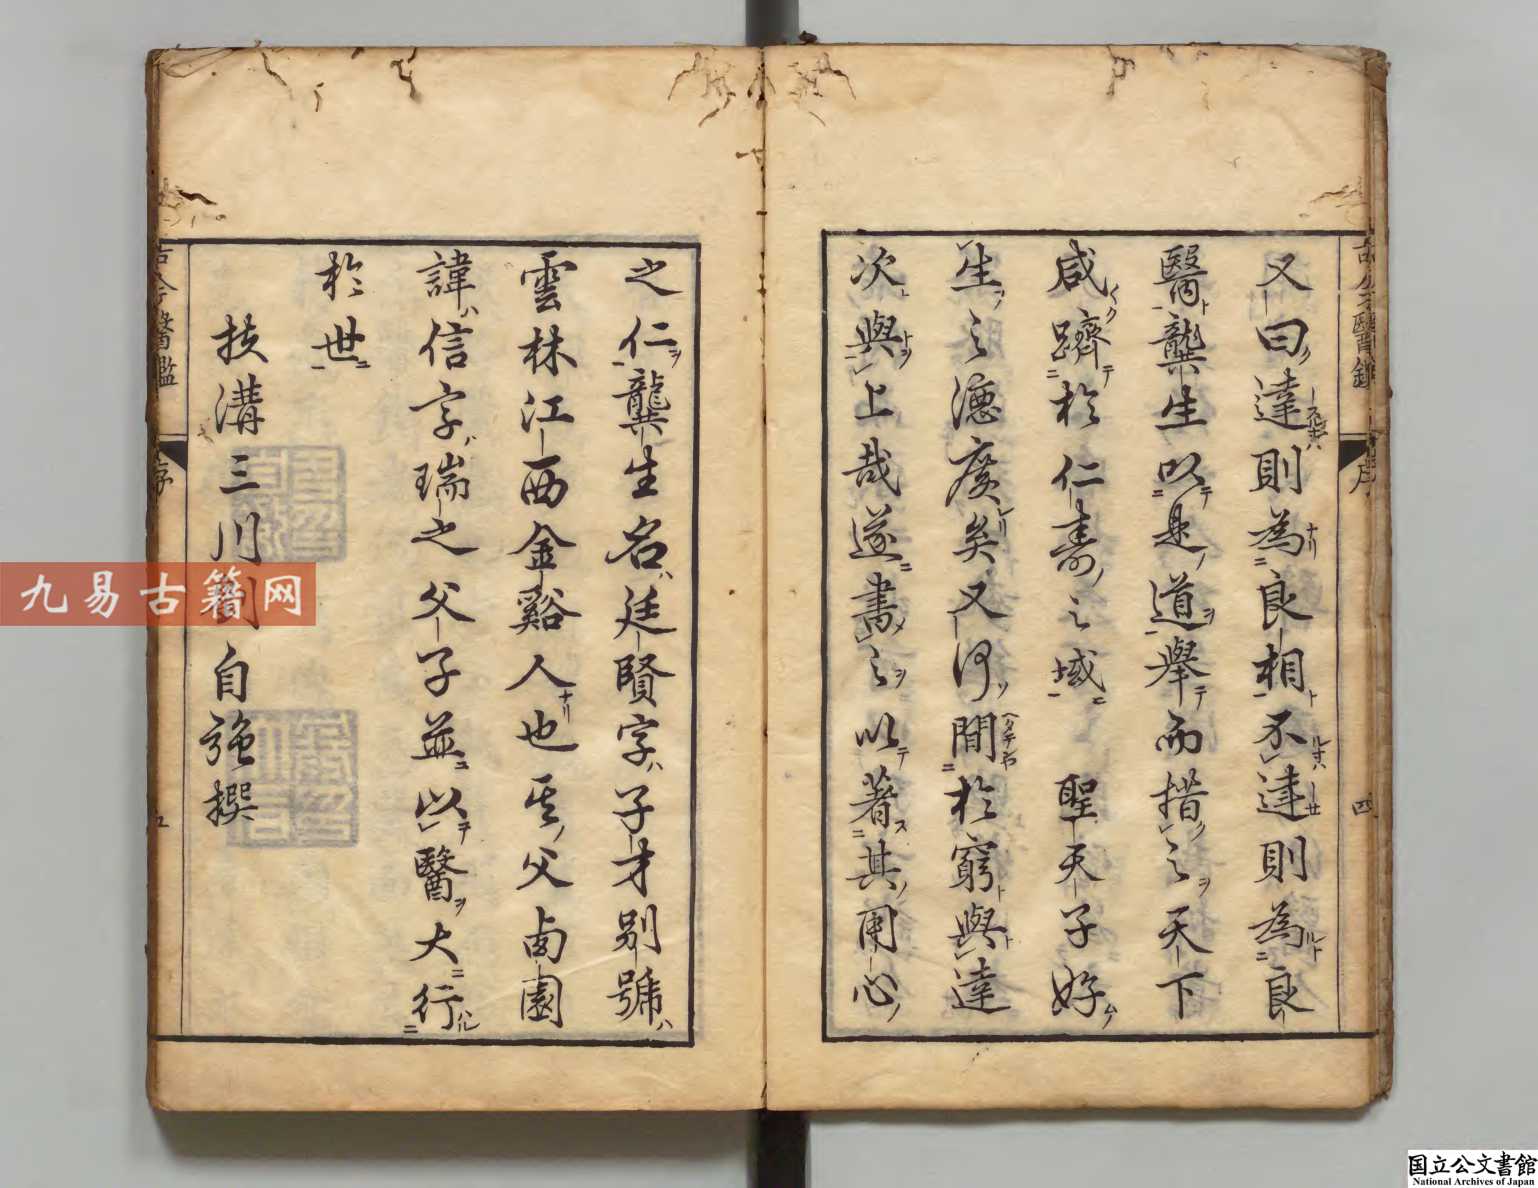 又曰達則為良相不達則為良
醫龔生以是道舉而措之天下
咸躋於仁壽之域 聖天子好
生之德廣矣又何間於窮與達
次與上哉遂書之以著其用心
之仁龔生名廷賢字子才別號
雲林江西金谿人也其父西園
諱信字瑞之父子並以醫大行
於世
扶溝三川劉自強撰
古今醫鑑
序
四
古今醫鑑
序
五
九易古籍网
国立公文書館
National Archives of Japan